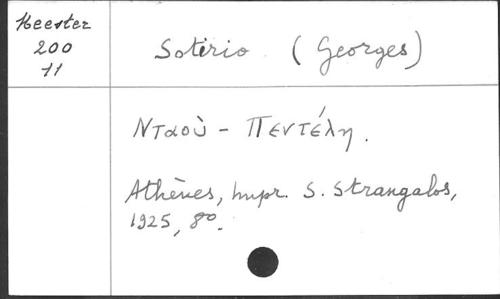 Meester
200
11
Sotirio (Georges)
Νταοὺ - Πεντέλη.
Athènes, Impr. S. Strangalos,
1925, 8º.